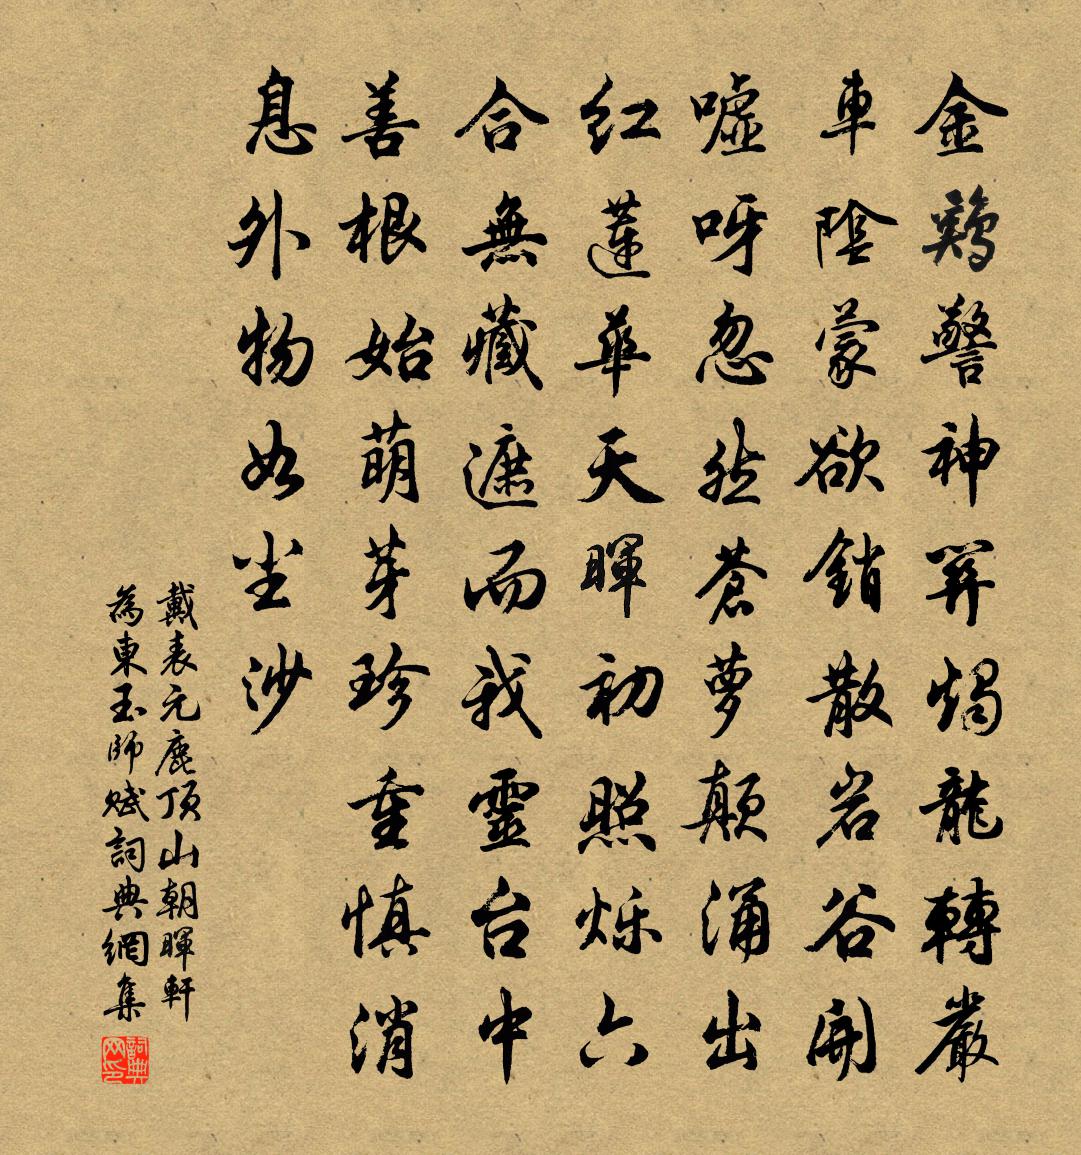 金鷄警神羿燭龍轉嚴
車陰蒙欲銷散岩谷開
嘘呀忽然蒼萝颠涌出
红蓮華天暉初照烁六
合無藏遮而我靈台中
善根始萌芽珍重慎消
息外物如尘沙
戴表元鹿顶山朝暉軒
為東玉師赋詞典網集
詞典网印